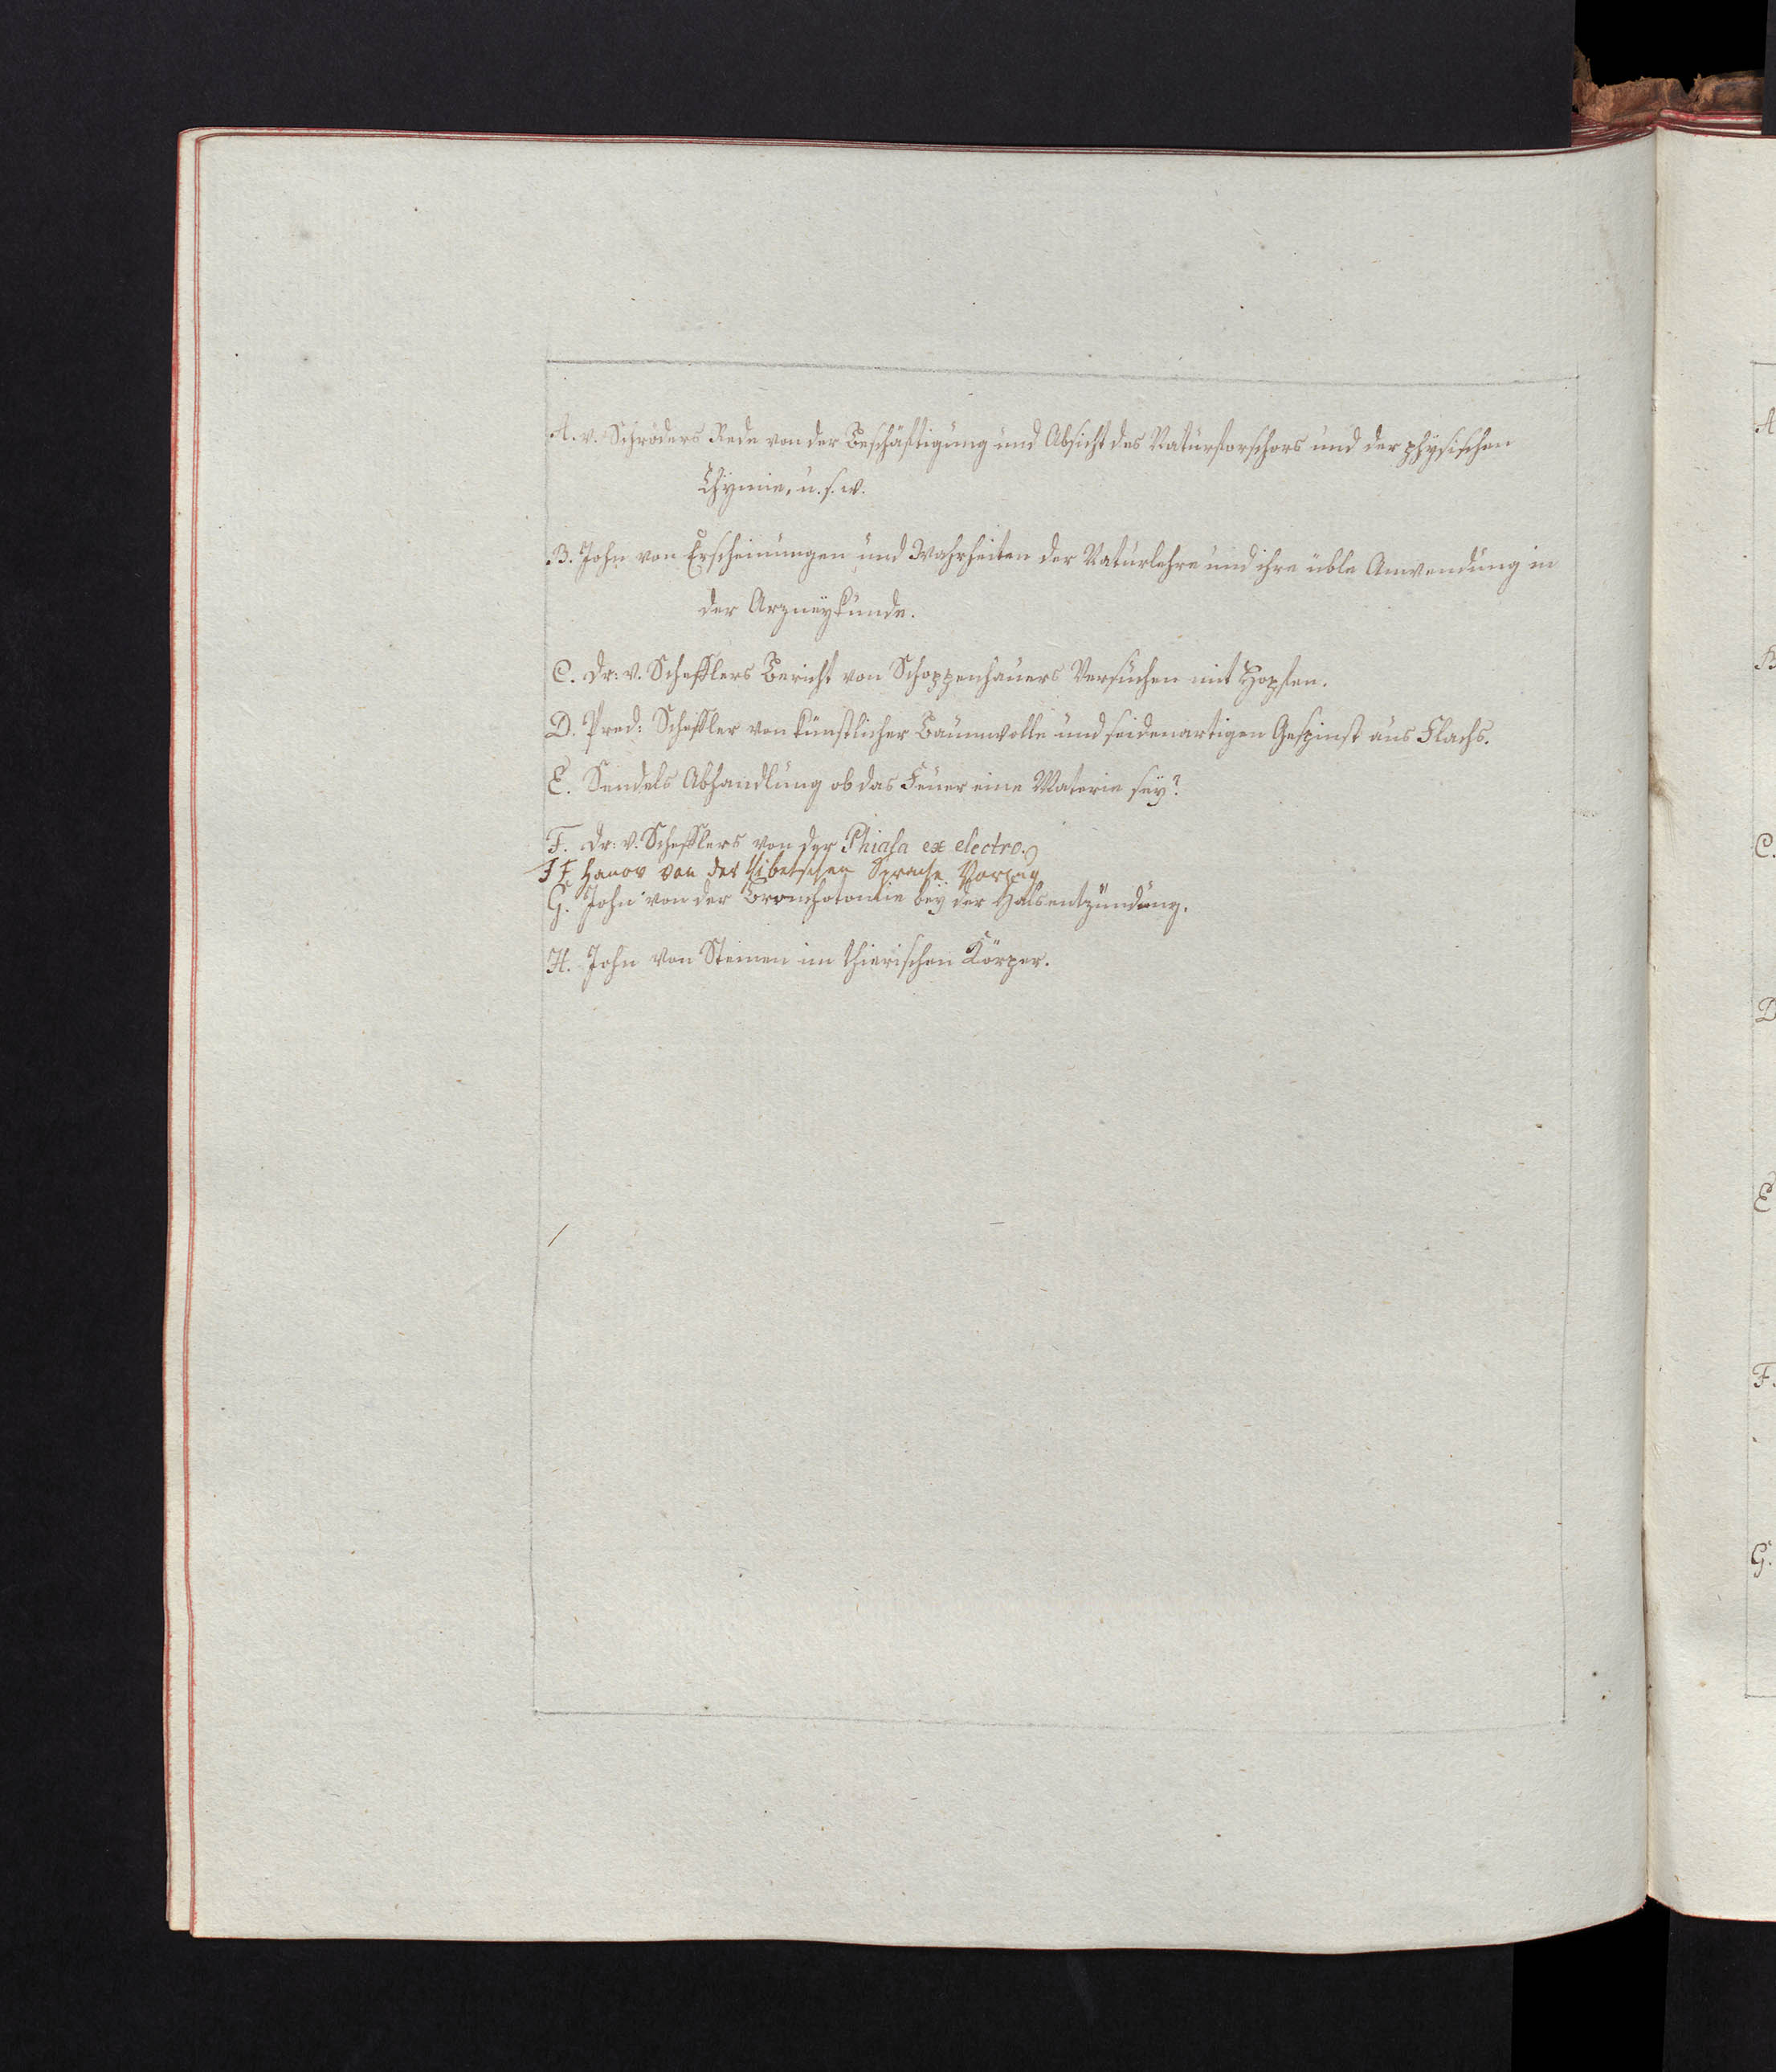 A. v. Schröders Rede von der Beschäftigung und Absicht des Naturforschers und der physischen
Chymie, u. s. w.
B. John von Erscheinungen und Wahrheiten der Naturlehre und ihre üble Anwendung in
der Arzneykunde.
C. Dr: v. Schefflers Bericht von Schoppenhauers Versuchen mit Hopfen.
D. Pred: Scheffler von künstlicher Baumwolle und seidenartigen Gespinst aus Flachs.
E. Sendels Abhandlung ob das Feuer eine Materie sey?
F. Dr: v. Schefflers von der Phiala ex electro.
FF. Hanov von der tibetschen Sprache Vorzug
G. John von der Bronchotomie bey der Halsentzündung.
H. John von Steinen im thierischen Körper.
A
B
C.
D
E
F.
G.